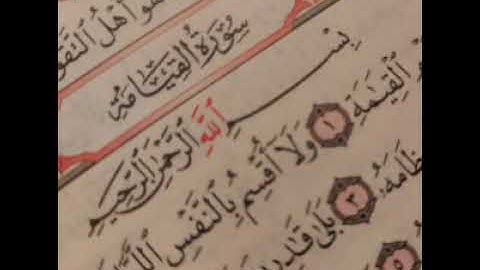 أَهْلُ التَّقْوَ
سُورَةُ الْقِيَامَةِ
بِسْمِ اللَّهِ الرَّحْمَٰنِ الرَّحِيمِ
الْقِيَٰمَةِ ١ وَلَآ أُقْسِمُ بِالنَّفْسِ اللَّ
ظَامَهُۥ ٣ بَلَىٰ قَٰدِرِ